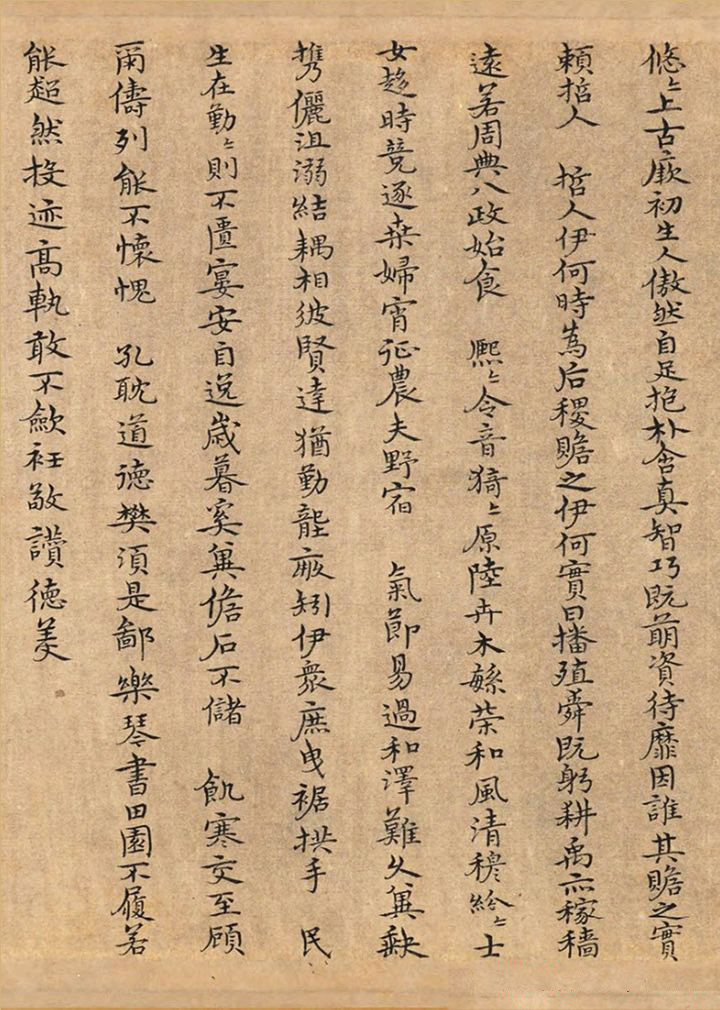 悠〻上古厥初生人傲然自足抱朴含真智巧既萌資待靡因誰其贍之實
頼哲人 哲人伊何時為后稷贍之伊何實曰播殖舜既躬耕禹亦稼穡
遠若周典八政始食 熙〻令音猗〻原陸卉木繁榮和風清穆紛〻士
女趍時競逐桒婦宵征農夫野宿 氣節易過和澤難久兾缺
携儷沮溺結耦相彼賢達猶勤壟畝矧伊衆庶曳裾拱手 民
生在勤〻則不匱宴安自逸歳暮奚兾儋石不儲 飢寒交至顧
爾儔列能不懷愧 孔耽道德樊須是鄙樂琴書田園不履若
能超然投迹高軌敢不歛衽敬讚德美